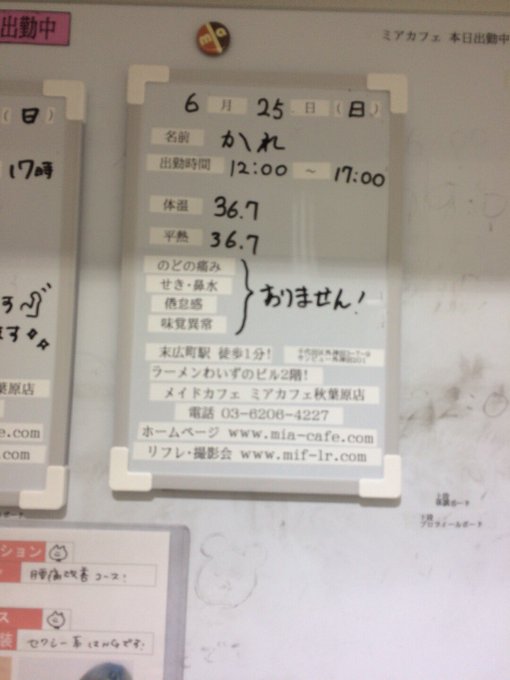 出勤中
ミアカフェ 本日出勤中
(日)
17時
6月 25日(日)
名前 かれ
出勤時間 12:00 ~ 17:00
体温 36.7
平熱 36.7
のどの痛み
せき・鼻水
倦怠感
味覚異常
おりません!
末広町駅 徒歩1分!
ラーメンわいずのビル2階!
メイドカフェ ミアカフェ秋葉原店
電話 03-6206-4227
ホームページ www.mia-cafe.com
リフレ・撮影会 www.mif-lr.com
葉原店
fe.com
.com
上段
体調ボード
下段
プロフィールボード
ション
腰痛改善コース!
ス
装
セクシー系はNGです!